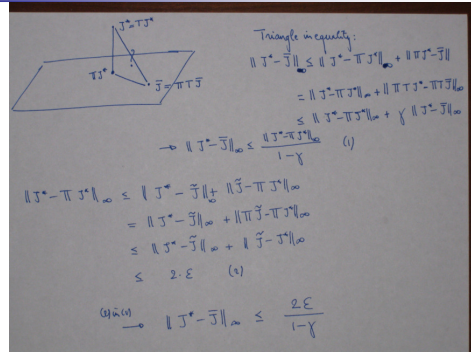 J* = TJ*
?
πJ*
J̄ = πTJ̄
Triangle inequality:
‖J* - J̄‖∞ ≤ ‖J* - πJ*‖∞ + ‖πJ* - J̄‖
= ‖J* - πJ*‖∞ + ‖πTJ* - πTJ̄‖∞
≤ ‖J* - πJ*‖∞ + γ‖J* - J̄‖∞
→ ‖J* - J̄‖∞ ≤ ‖J* - πJ*‖∞ / (1-γ) (1)
‖J* - πJ*‖∞ ≤ ‖J* - J̃‖∞ + ‖J̃ - πJ*‖∞
= ‖J* - J̃‖∞ + ‖πJ̃ - πJ*‖∞
≤ ‖J* - J̃‖∞ + ‖J̃ - J*‖∞
≤ 2·ε (2)
(2) in (1) → ‖J* - J̄‖∞ ≤ 2ε / (1-γ)